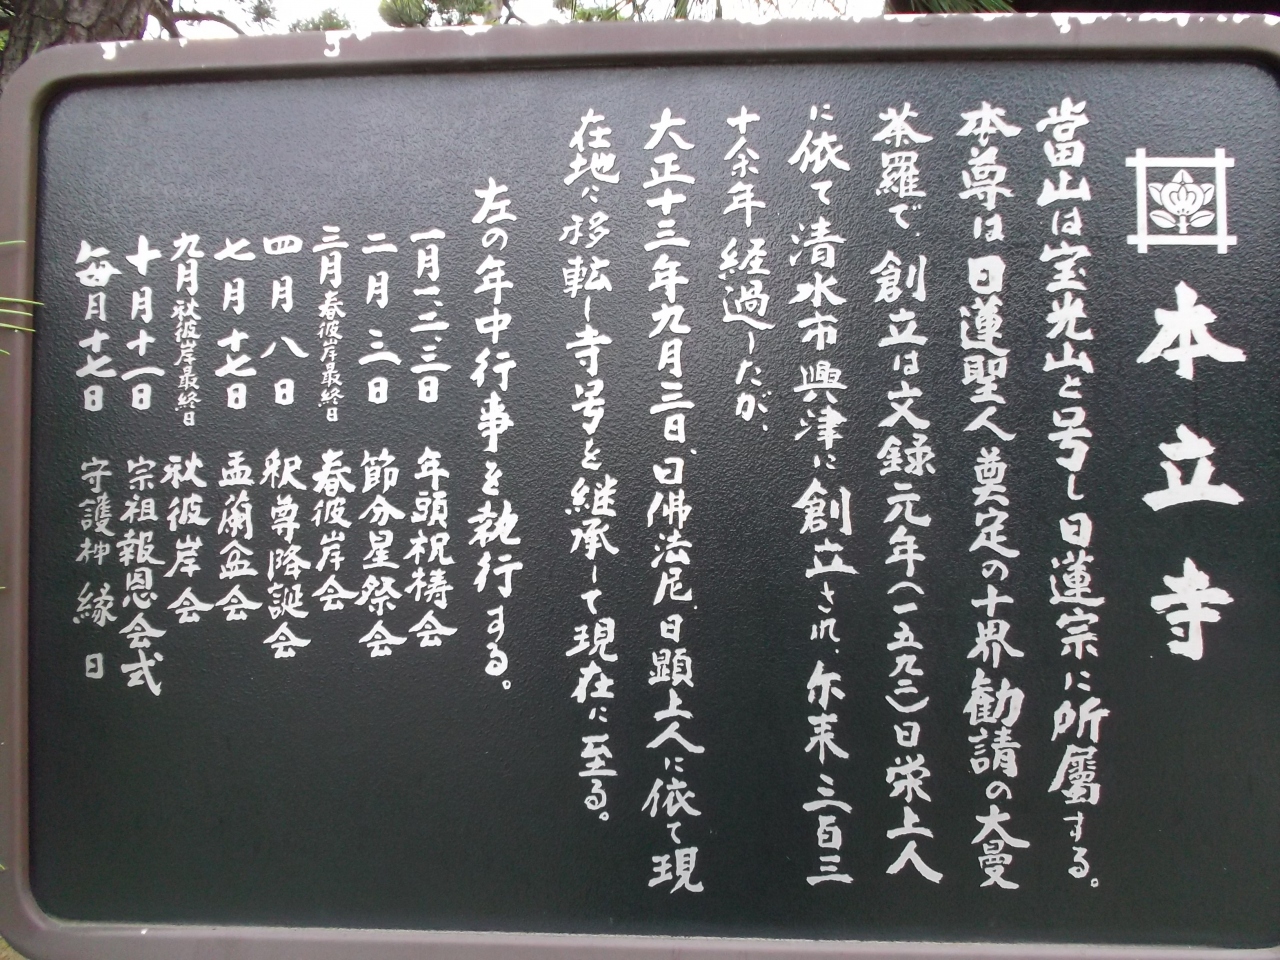 本立寺
當山は宝光山と号し日蓮宗に所屬する。
本尊は日蓮聖人奠定の十界勧請の大曼
荼羅で、創立は文録元年(一五九二)日栄上人
に依て清水市興津に創立され、尓来三百三
十余年経過したが、
大正十三年九月三日、日佛法尼、日顕上人に依て現
在地に移転し寺号を継承して現在に至る。
左の年中行事を執行する。
一月一、二、三日 年頭祝梼会
二月三日 節分星祭会
三月春彼岸最終日 春彼岸会
四月八日 釈尊降誕会
七月十七日 盂蘭盆会
九月秋彼岸最終日 秋彼岸会
十月十一日 宗祖報恩会式
毎月十七日 守護神縁日